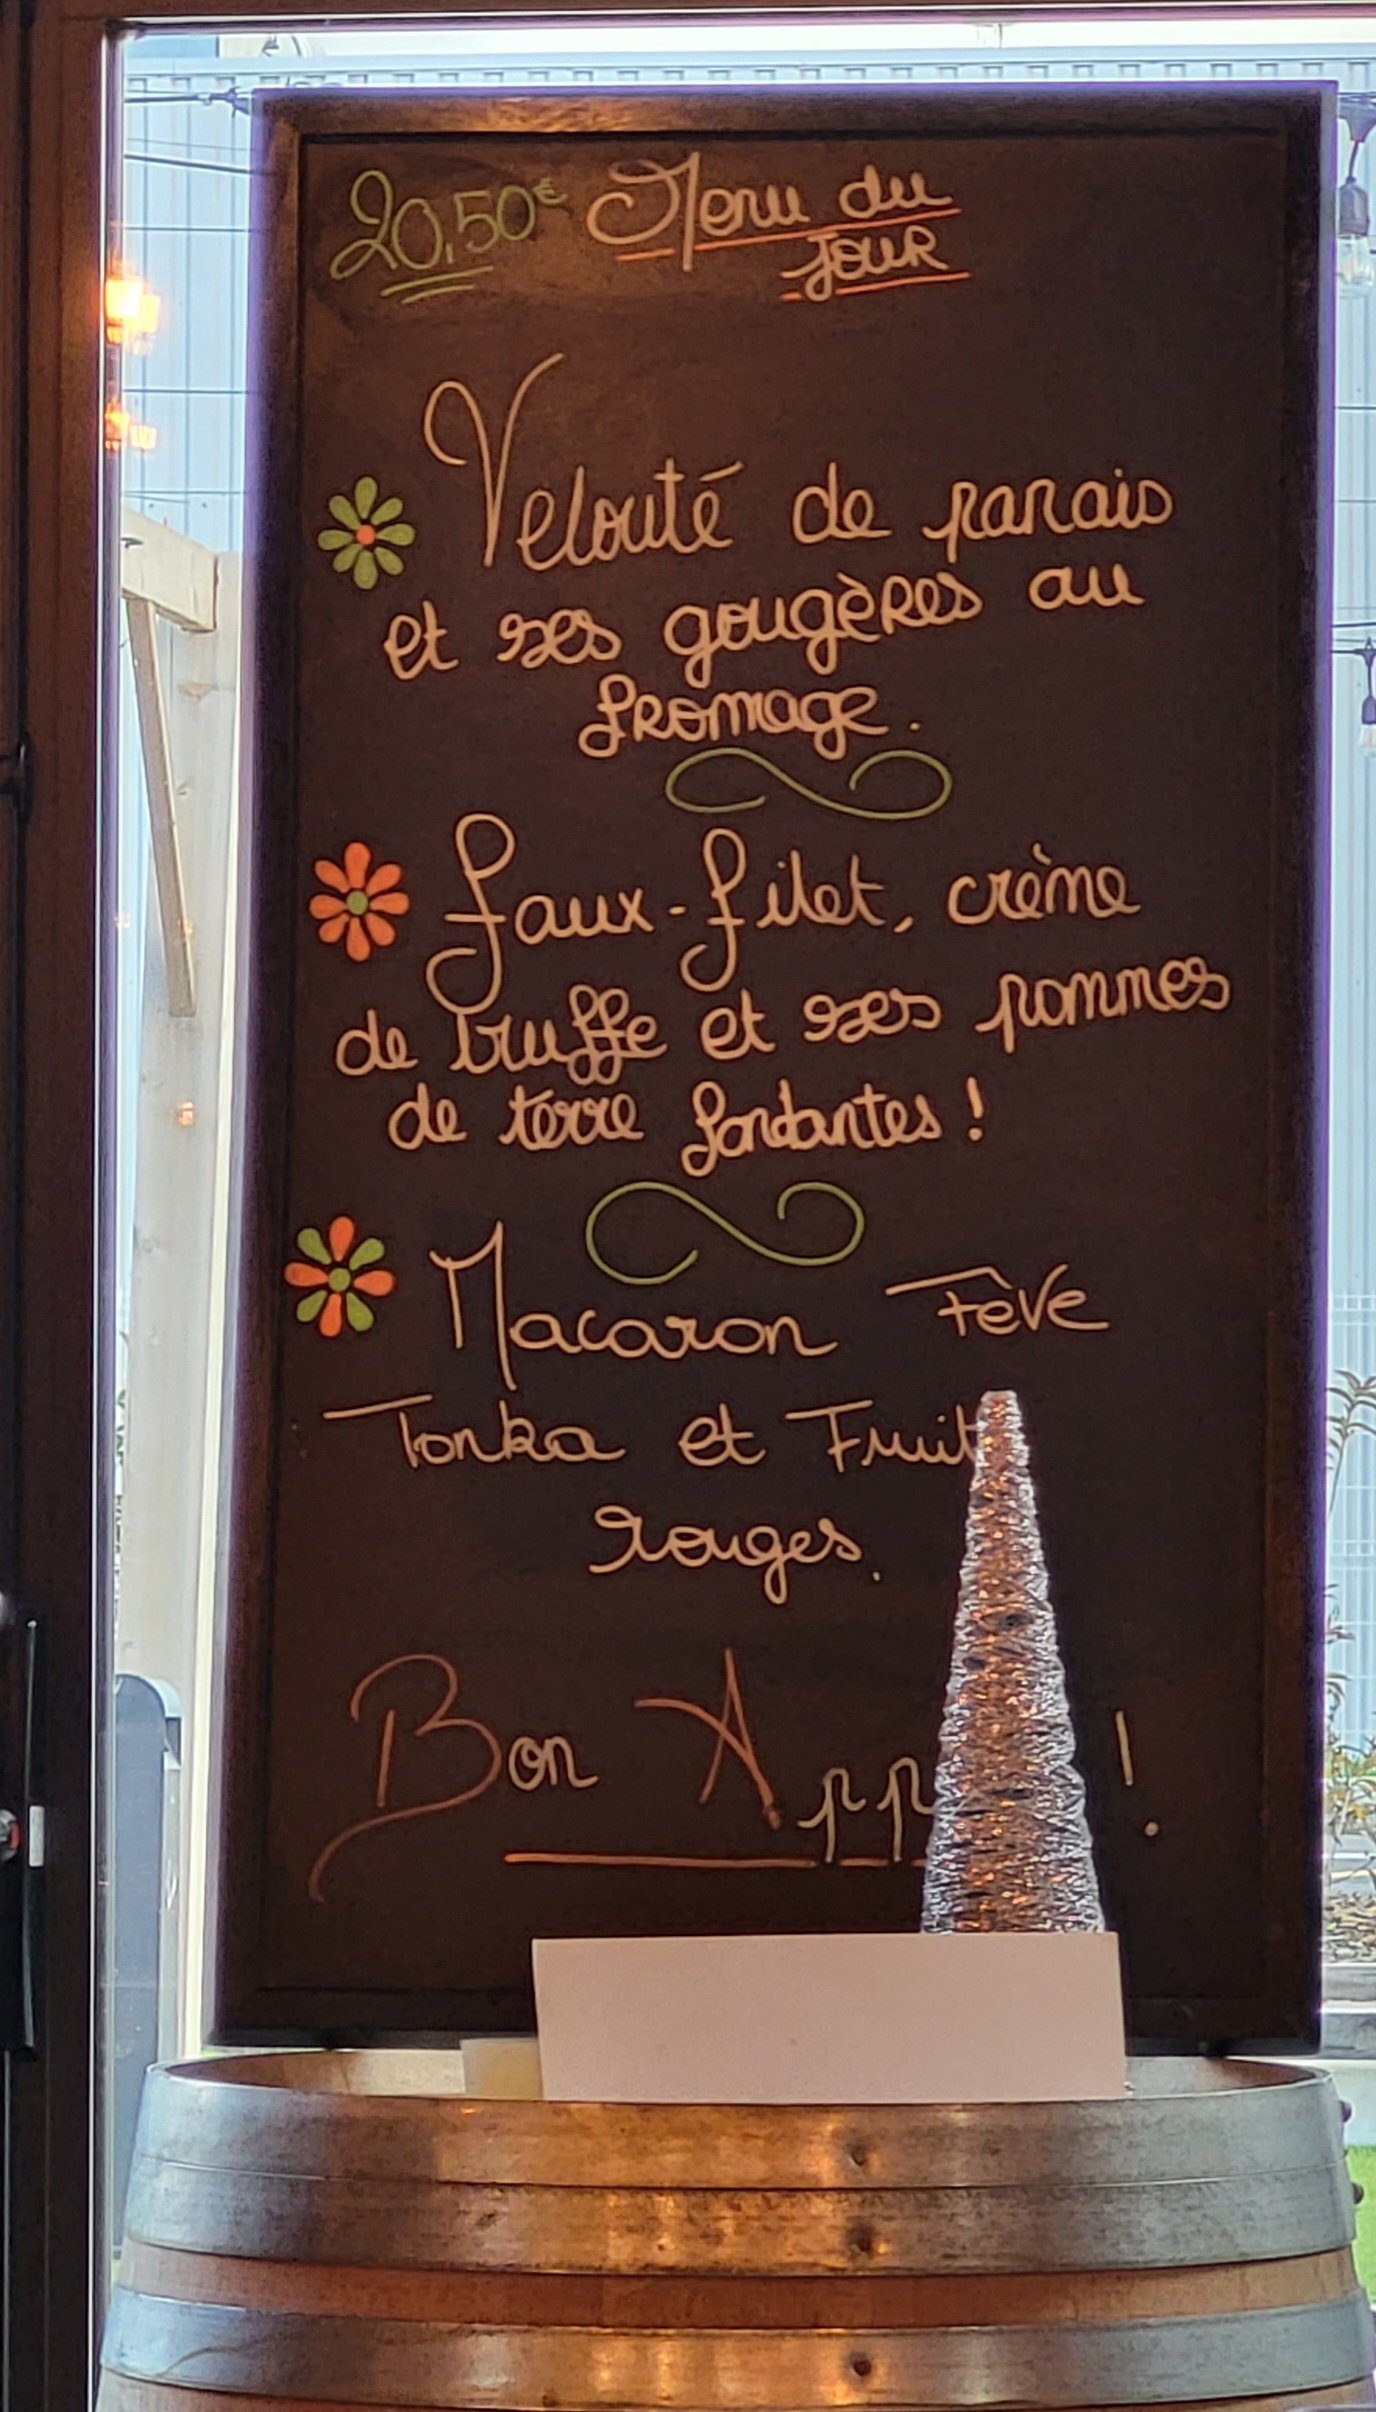 20,50€ Menu du
jour
Velouté de panais
et ses gougères au
fromage.
faux-filet, crème
de truffe et ses pommes
de terre fondantes !
Macaron Fève
Tonka et Fruit
rouges.
Bon App !